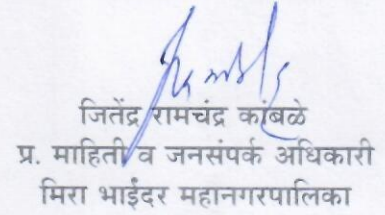 जितेंद्र रामचंद्र कांबळे
प्र. माहिती व जनसंपर्क अधिकारी
मिरा भाईंदर महानगरपालिका